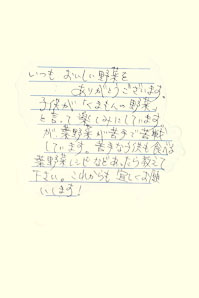 いつも おいしい野菜を
ありがとうございます。
子供が「くまもんの野菜」
と言って楽しみにしています
が 葉野菜が苦手で苦戦
しています。苦手な子供も食べる
葉野菜レシピなどあったら教えて
下さい。これからも宜しくお願
いします!